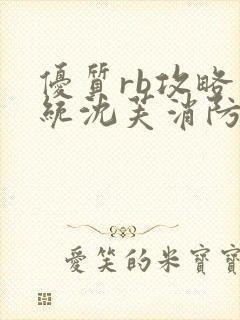 優質rb攻略
統沈芙消防
愛笑的米寶寶